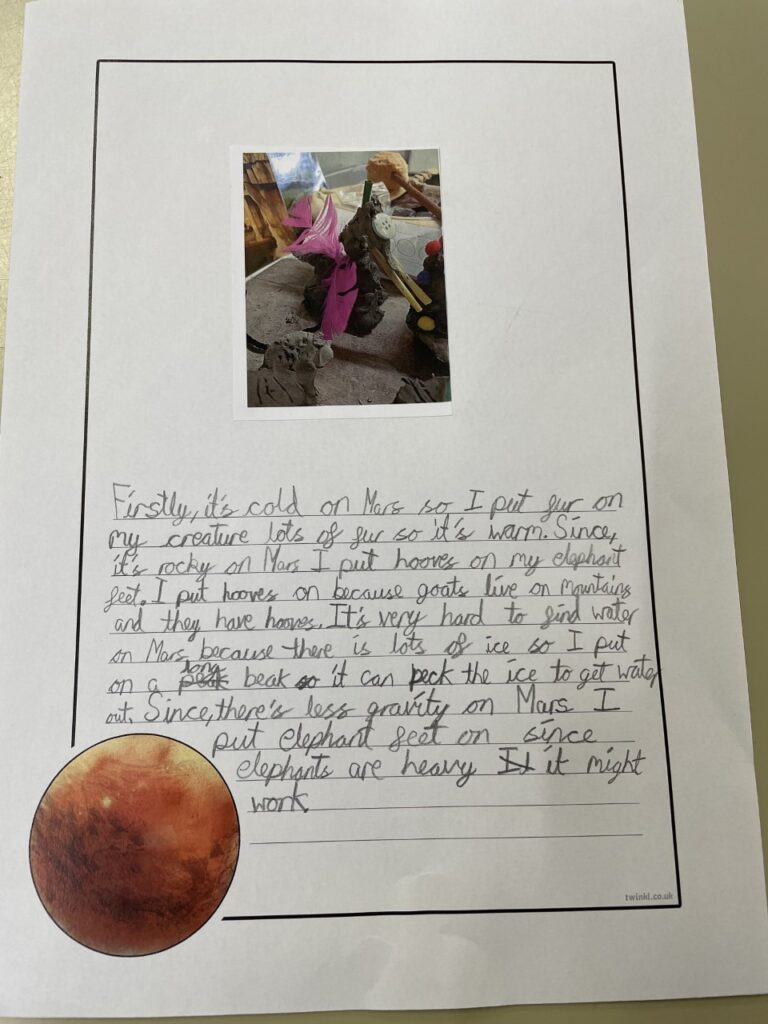 Firstly, it's cold on Mars so I put fur on
my creature lots of fur so it's warm. Since,
it's rocky on Mars I put hooves on my elephant
feet. I put hooves on because goats live on mountains
and they have hooves. It's very hard to find water
on Mars because there is lots of ice so I put
on a long beak so it can peck the ice to get water
out. Since, there's less gravity on Mars I
put elephant feet on since
elephants are heavy it might
work.
twinkl.co.uk